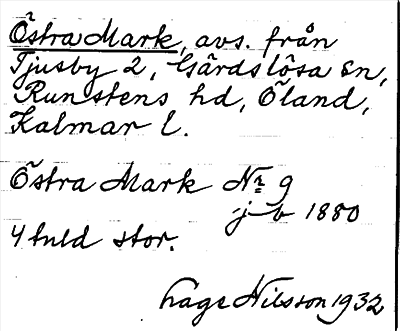 Östra Mark, avs. från
Tjusby 2, Gärdslösa sn,
Runstens hd, Öland,
Kalmar l.
Östra Mark Nr 9
jb 1880
4 tnld stor.
Åage Nilsson 1932